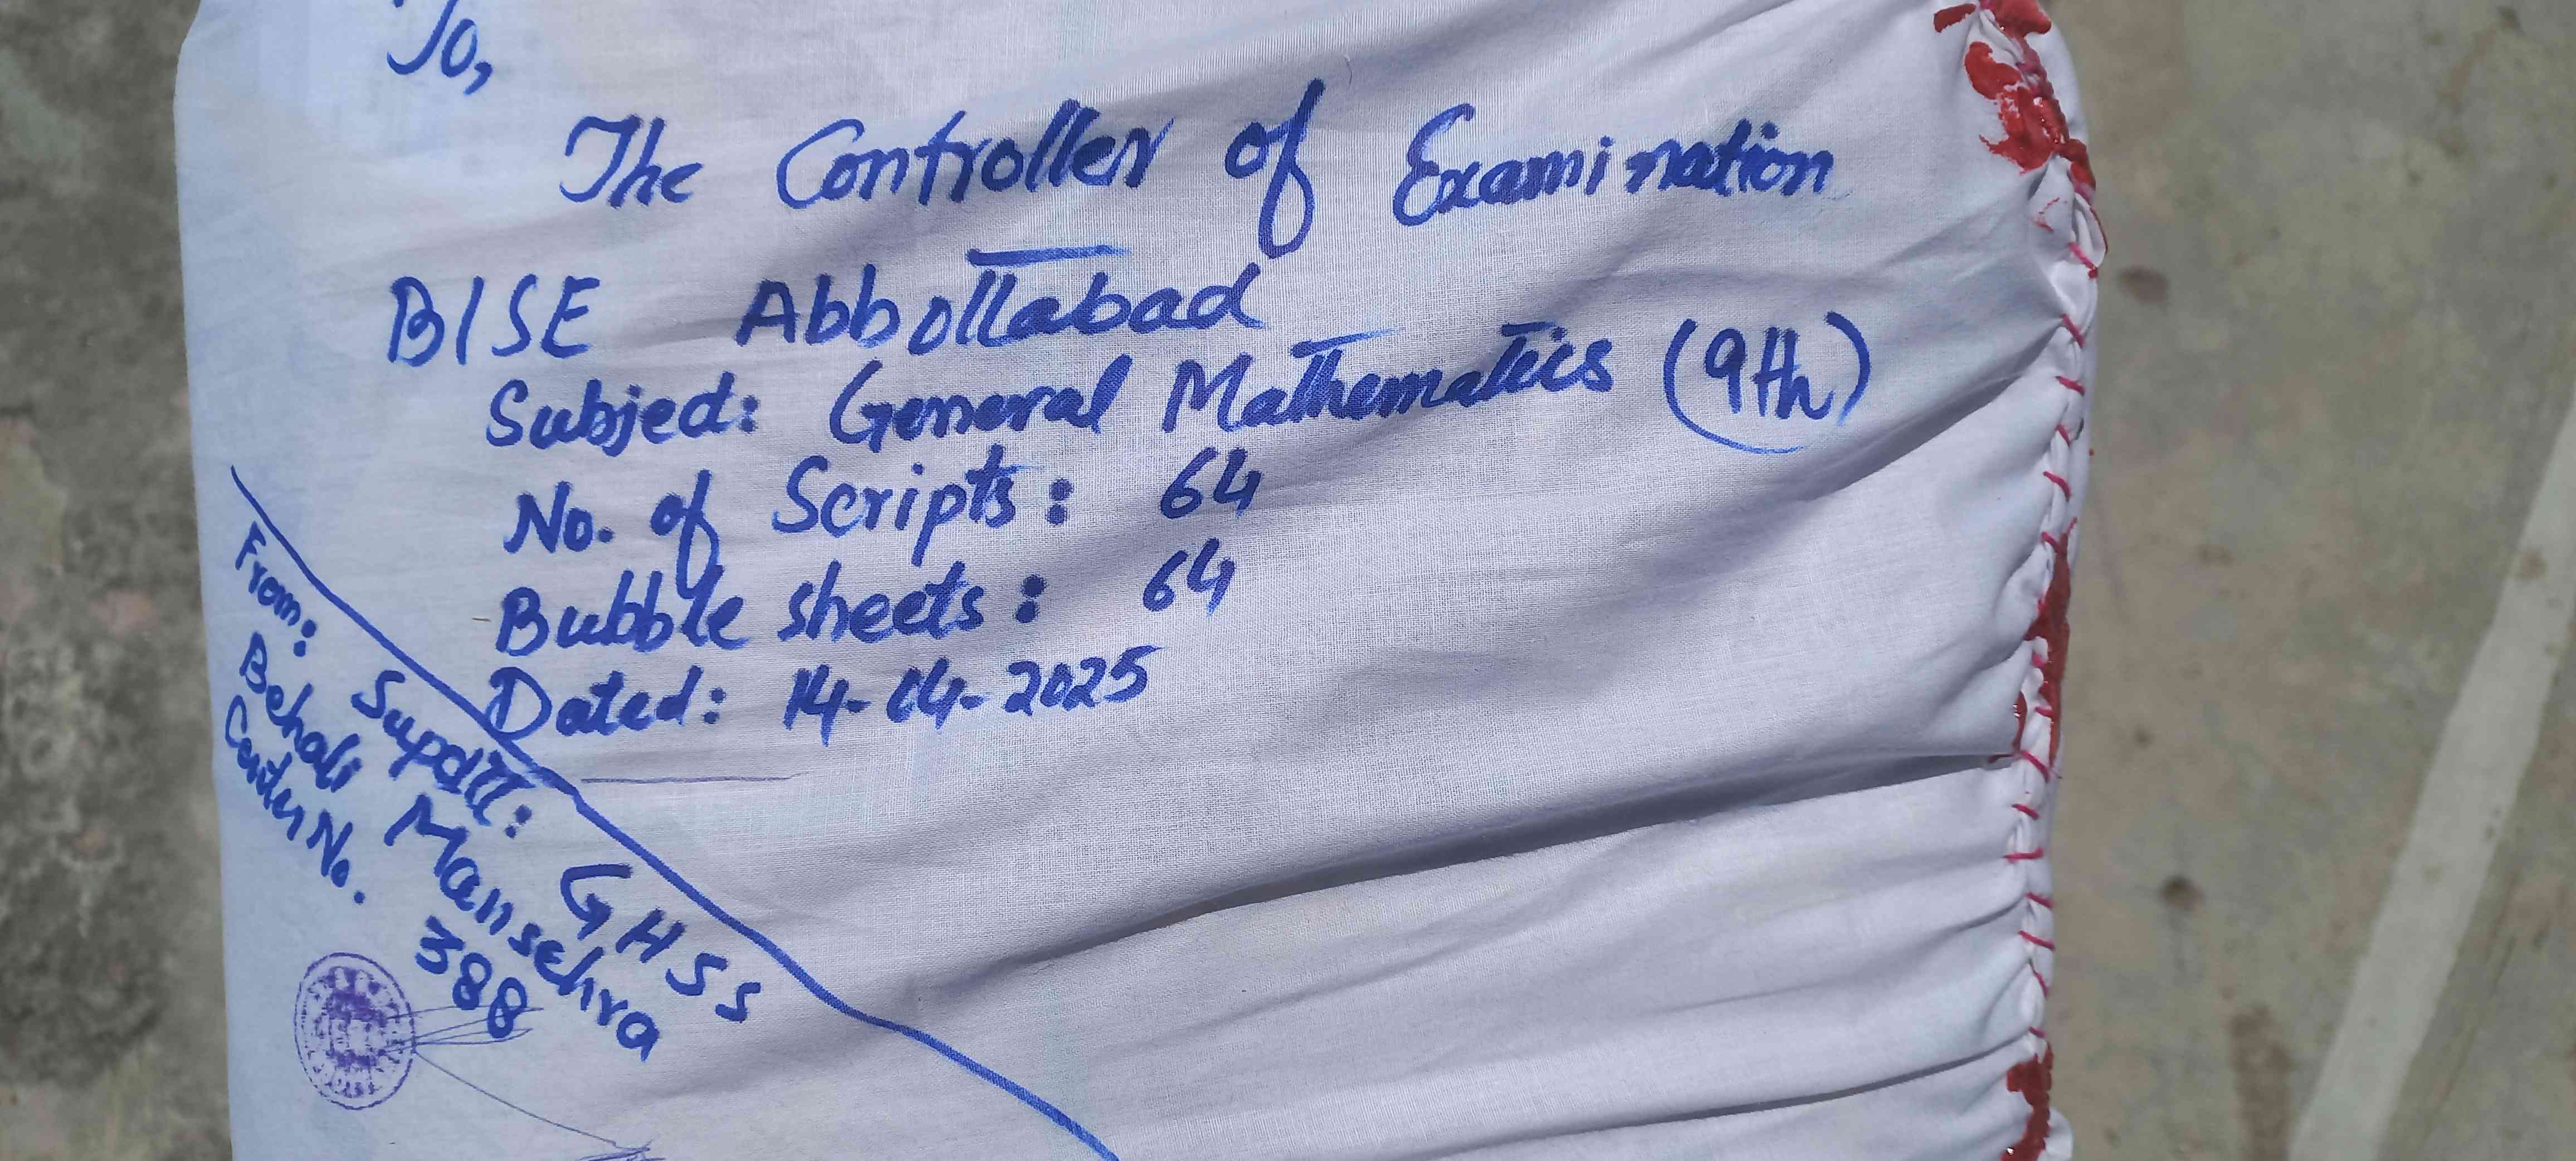 To,
The Controller of Examination
BISE Abbottabad
Subject: General Mathematics (9th)
No. of Scripts: 64
Bubble sheets: 64
Dated: 14-04-2025
From: Supdtt: GHSS
Behali Mansehra
Center No. 388